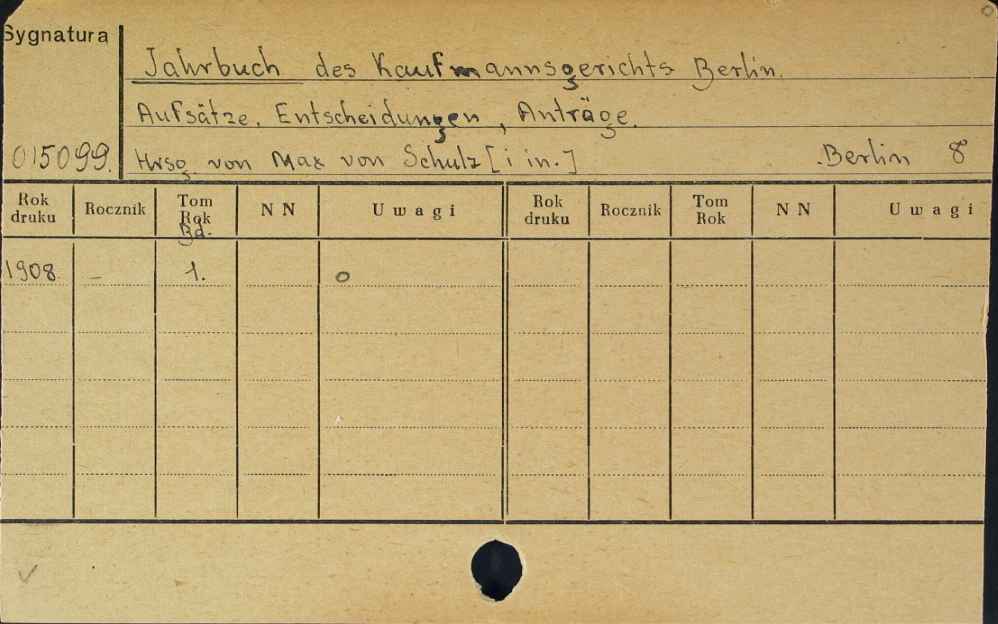 Sygnatura
Jahrbuch des Kaufmannsgerichts Berlin.
Aufsätze. Entscheidungen, Anträge.
015099. Hrsg. von Max von Schulz [i in.] Berlin 8
Rok druku Rocznik Tom Rok Bd. NN Uwagi Rok druku Rocznik Tom Rok NN Uwagi
1908 – 1. o